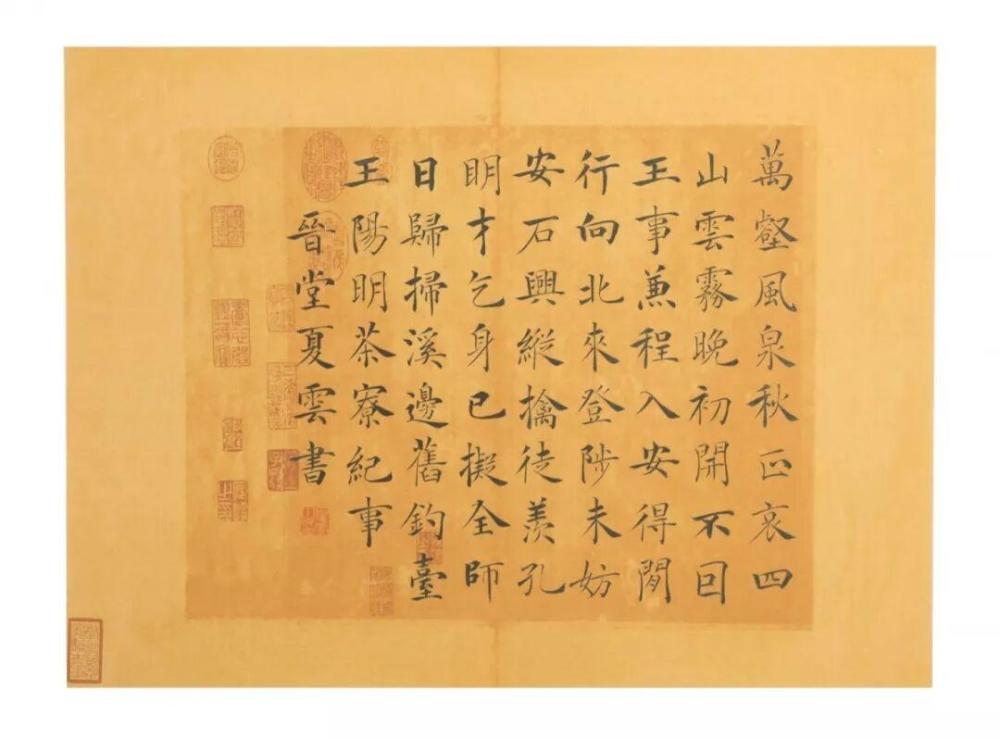 萬壑風泉秋正哀四
山雲霧晚初開不囙
王事兼程入安得閒
行向北來登陟未妨
安石興縱擒徒羨孔
明才乞身已擬全師
日歸掃溪邊舊釣臺
王陽明茶寮紀事
晉堂夏雲書